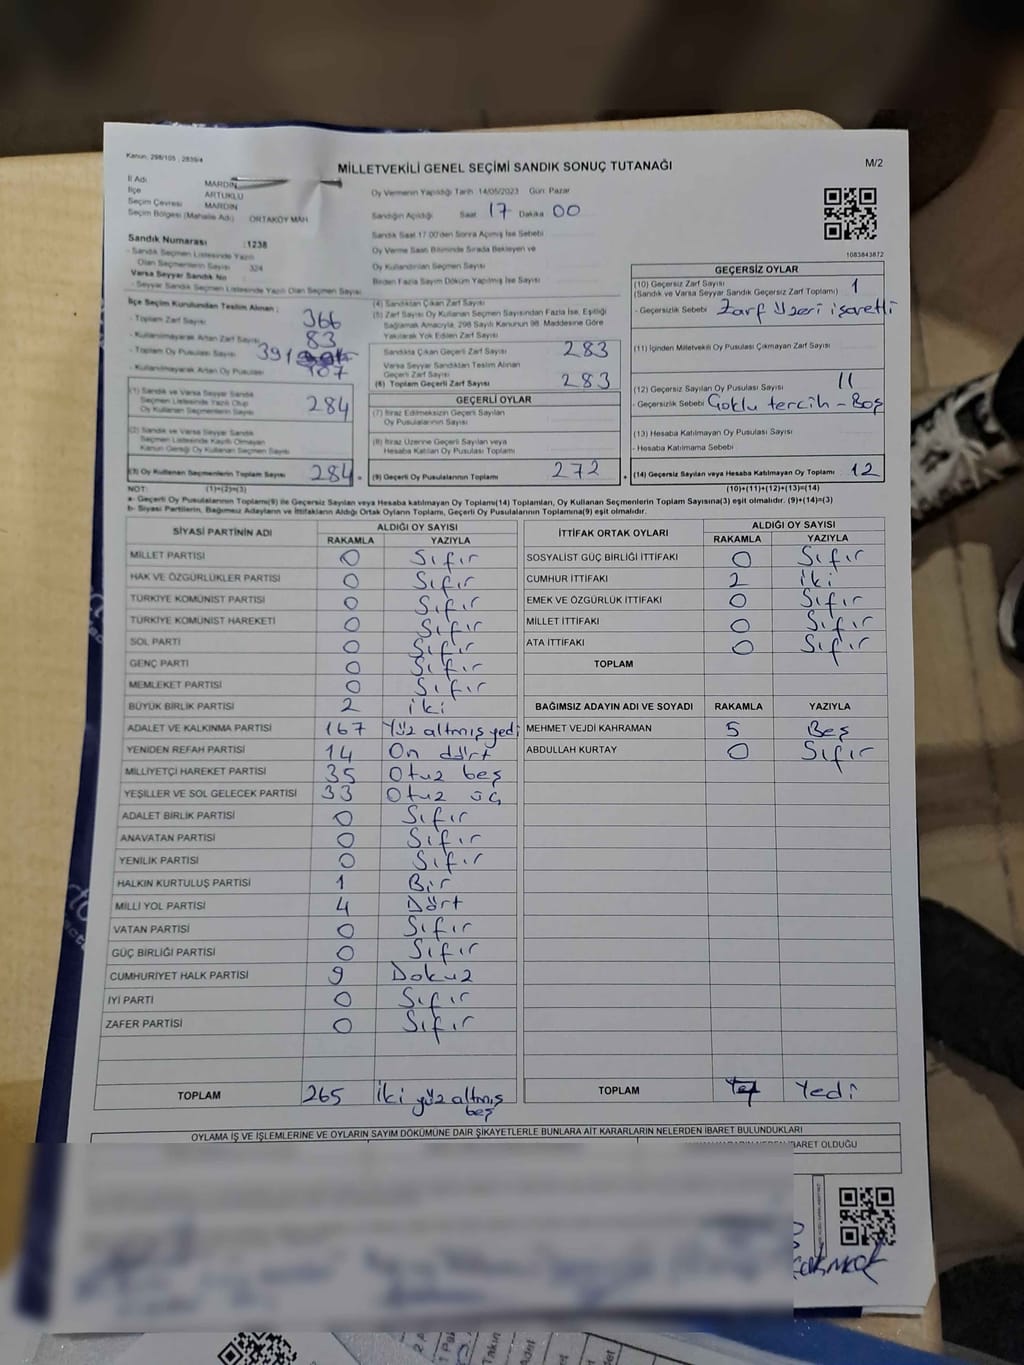 Kanun, 298/105 , 2839/4
MİLLETVEKİLİ GENEL SEÇİMİ SANDIK SONUÇ TUTANAĞI
M/2
İl Adı MARDİN
İlçe ARTUKLU
Seçim Çevresi MARDİN
Seçim Bölgesi (Mahalle Adı) ORTAKÖY MAH
Sandık Numarası :1238
- Sandık Seçmen Listesinde Yazılı
Olan Seçmenlerin Sayısı 324
Varsa Seyyar Sandık No
- Seyyar Sandık Seçmen Listesinde Yazılı Olan Seçmen Sayısı
İlçe Seçim Kurulundan Teslim Alınan ;
- Toplam Zarf Sayısı 366
- Kullanılmayarak Artan Zarf Sayısı 83
- Toplam Oy Pusulası Sayısı 391
- Kullanılmayarak Artan Oy Pusulası 107
(1) Sandık ve Varsa Seyyar Sandık
Seçmen Listesinde Yazılı Olup
Oy Kullanan Seçmenlerin Sayısı 284
(2) Sandık ve Varsa Seyyar Sandık
Seçmen Listesinde Kayıtlı Olmayan
Kanun Gereği Oy Kullanan Seçmen Sayısı
(3) Oy Kullanan Seçmenlerin Toplam Sayısı 284
Oy Vermenin Yapıldığı Tarih 14/05/2023 Gün: Pazar
Sandığın Açıldığı Saat 17 Dakika 00
Sandık Saat 17.00'den Sonra Açılmış İse Sebebi
Oy Verme Saati Bitiminde Sırada Bekleyen ve
Oy Kullandırılan Seçmen Sayısı
Birden Fazla Sayım Döküm Yapılmış İse Sayısı
(4) Sandıktan Çıkan Zarf Sayısı
(5) Zarf Sayısı Oy Kullanan Seçmen Sayısından Fazla İse, Eşitliği
Sağlamak Amacıyla, 298 Sayılı Kanunun 98. Maddesine Göre
Yakılarak Yok Edilen Zarf Sayısı
Sandıkta Çıkan Geçerli Zarf Sayısı 283
Varsa Seyyar Sandıktan Teslim Alınan
Geçerli Zarf Sayısı
(6) Toplam Geçerli Zarf Sayısı 283
GEÇERLİ OYLAR
(7) İtiraz Edilmeksizin Geçerli Sayılan
Oy Pusulalarının Sayısı
(8) İtiraz Üzerine Geçerli Sayılan veya
Hesaba Katılan Oy Pusulası Toplamı
(9) Geçerli Oy Pusulalarının Toplamı 272
1083843872
GEÇERSİZ OYLAR
(10) Geçersiz Zarf Sayısı 1
(Sandık ve Varsa Seyyar Sandık Geçersiz Zarf Toplamı)
- Geçersizlik Sebebi Zarf üzeri işaretli
(11) İçinden Milletvekili Oy Pusulası Çıkmayan Zarf Sayısı
(12) Geçersiz Sayılan Oy Pusulası Sayısı 11
- Geçersizlik Sebebi Çoklu tercih - Boş
(13) Hesaba Katılmayan Oy Pusulası Sayısı
- Hesaba Katılmama Sebebi
(14) Geçersiz Sayılan veya Hesaba Katılmayan Oy Toplamı 12
NOT: (1)+(2)=(3) (10)+(11)+(12)+(13)=(14)
a- Geçerli Oy Pusulalarının Toplamı(9) ile Geçersiz Sayılan veya Hesaba katılmayan Oy Toplamı(14) Toplamları, Oy Kullanan Seçmenlerin Toplam Sayısına(3) eşit olmalıdır. (9)+(14)=(3)
b- Siyasi Partilerin, Bağımsız Adayların ve İttifakların Aldığı Ortak Oyların Toplamı, Geçerli Oy Pusulalarının Toplamına(9) eşit olmalıdır.
SİYASİ PARTİNİN ADI ALDIĞI OY SAYISI
RAKAMLA YAZIYLA
MİLLET PARTİSİ 0 Sıfır
HAK VE ÖZGÜRLÜKLER PARTİSİ 0 Sıfır
TÜRKİYE KOMÜNİST PARTİSİ 0 Sıfır
TÜRKİYE KOMÜNİST HAREKETİ 0 Sıfır
SOL PARTİ 0 Sıfır
GENÇ PARTİ 0 Sıfır
MEMLEKET PARTİSİ 0 Sıfır
BÜYÜK BİRLİK PARTİSİ 2 iki
ADALET VE KALKINMA PARTİSİ 167 Yüz altmış yedi
YENİDEN REFAH PARTİSİ 14 On dört
MİLLİYETÇİ HAREKET PARTİSİ 35 Otuz beş
YEŞİLLER VE SOL GELECEK PARTİSİ 33 Otuz üç
ADALET BİRLİK PARTİSİ 0 Sıfır
ANAVATAN PARTİSİ 0 Sıfır
YENİLİK PARTİSİ 0 Sıfır
HALKIN KURTULUŞ PARTİSİ 1 Bir
MİLLİ YOL PARTİSİ 4 Dört
VATAN PARTİSİ 0 Sıfır
GÜÇ BİRLİĞİ PARTİSİ 0 Sıfır
CUMHURİYET HALK PARTİSİ 9 Dokuz
İYİ PARTİ 0 Sıfır
ZAFER PARTİSİ 0 Sıfır
TOPLAM 265 İki yüz altmış
beş
İTTİFAK ORTAK OYLARI ALDIĞI OY SAYISI
RAKAMLA YAZIYLA
SOSYALİST GÜÇ BİRLİĞİ İTTİFAKI 0 Sıfır
CUMHUR İTTİFAKI 2 iki
EMEK VE ÖZGÜRLÜK İTTİFAKI 0 Sıfır
MİLLET İTTİFAKI 0 Sıfır
ATA İTTİFAKI 0 Sıfır
TOPLAM
BAĞIMSIZ ADAYIN ADI VE SOYADI RAKAMLA YAZIYLA
MEHMET VEJDİ KAHRAMAN 5 Beş
ABDULLAH KURTAY 0 Sıfır
TOPLAM 7 Yedi
OYLAMA İŞ VE İŞLEMLERİNE VE OYLARIN SAYIM DÖKÜMÜNE DAİR ŞİKAYETLERLE BUNLARA AİT KARARLARIN NELERDEN İBARET BULUNDUKLARI
İBARET OLDUĞU